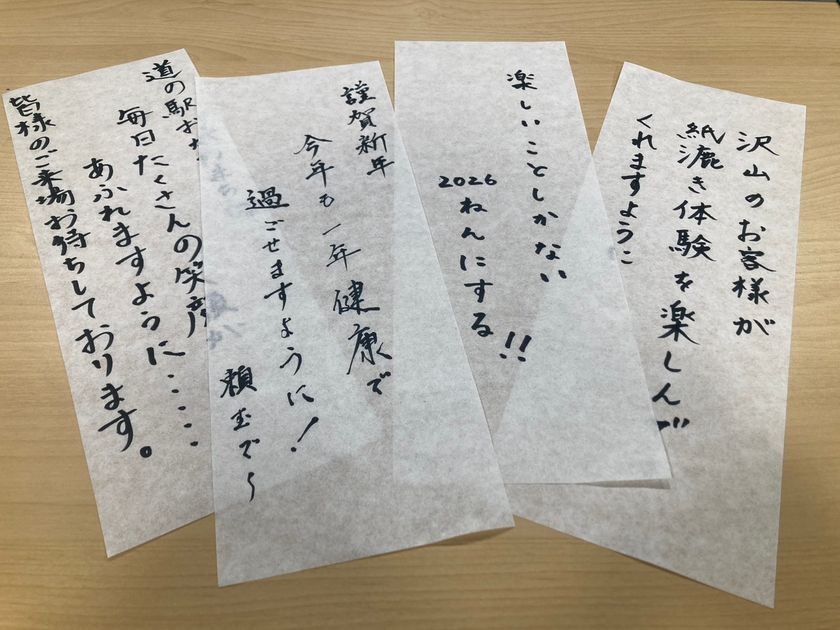 沢山のお客様が
紙漉き体験を楽しんで
くれますように
楽しいことしかない
2026ねんにする!!
謹賀新年
今年も一年健康で
過ごせますように!
頼むで〜
道の駅お
毎日たくさんの笑顔
あふれますように・・・・・
皆様のご来場お待ちしております。